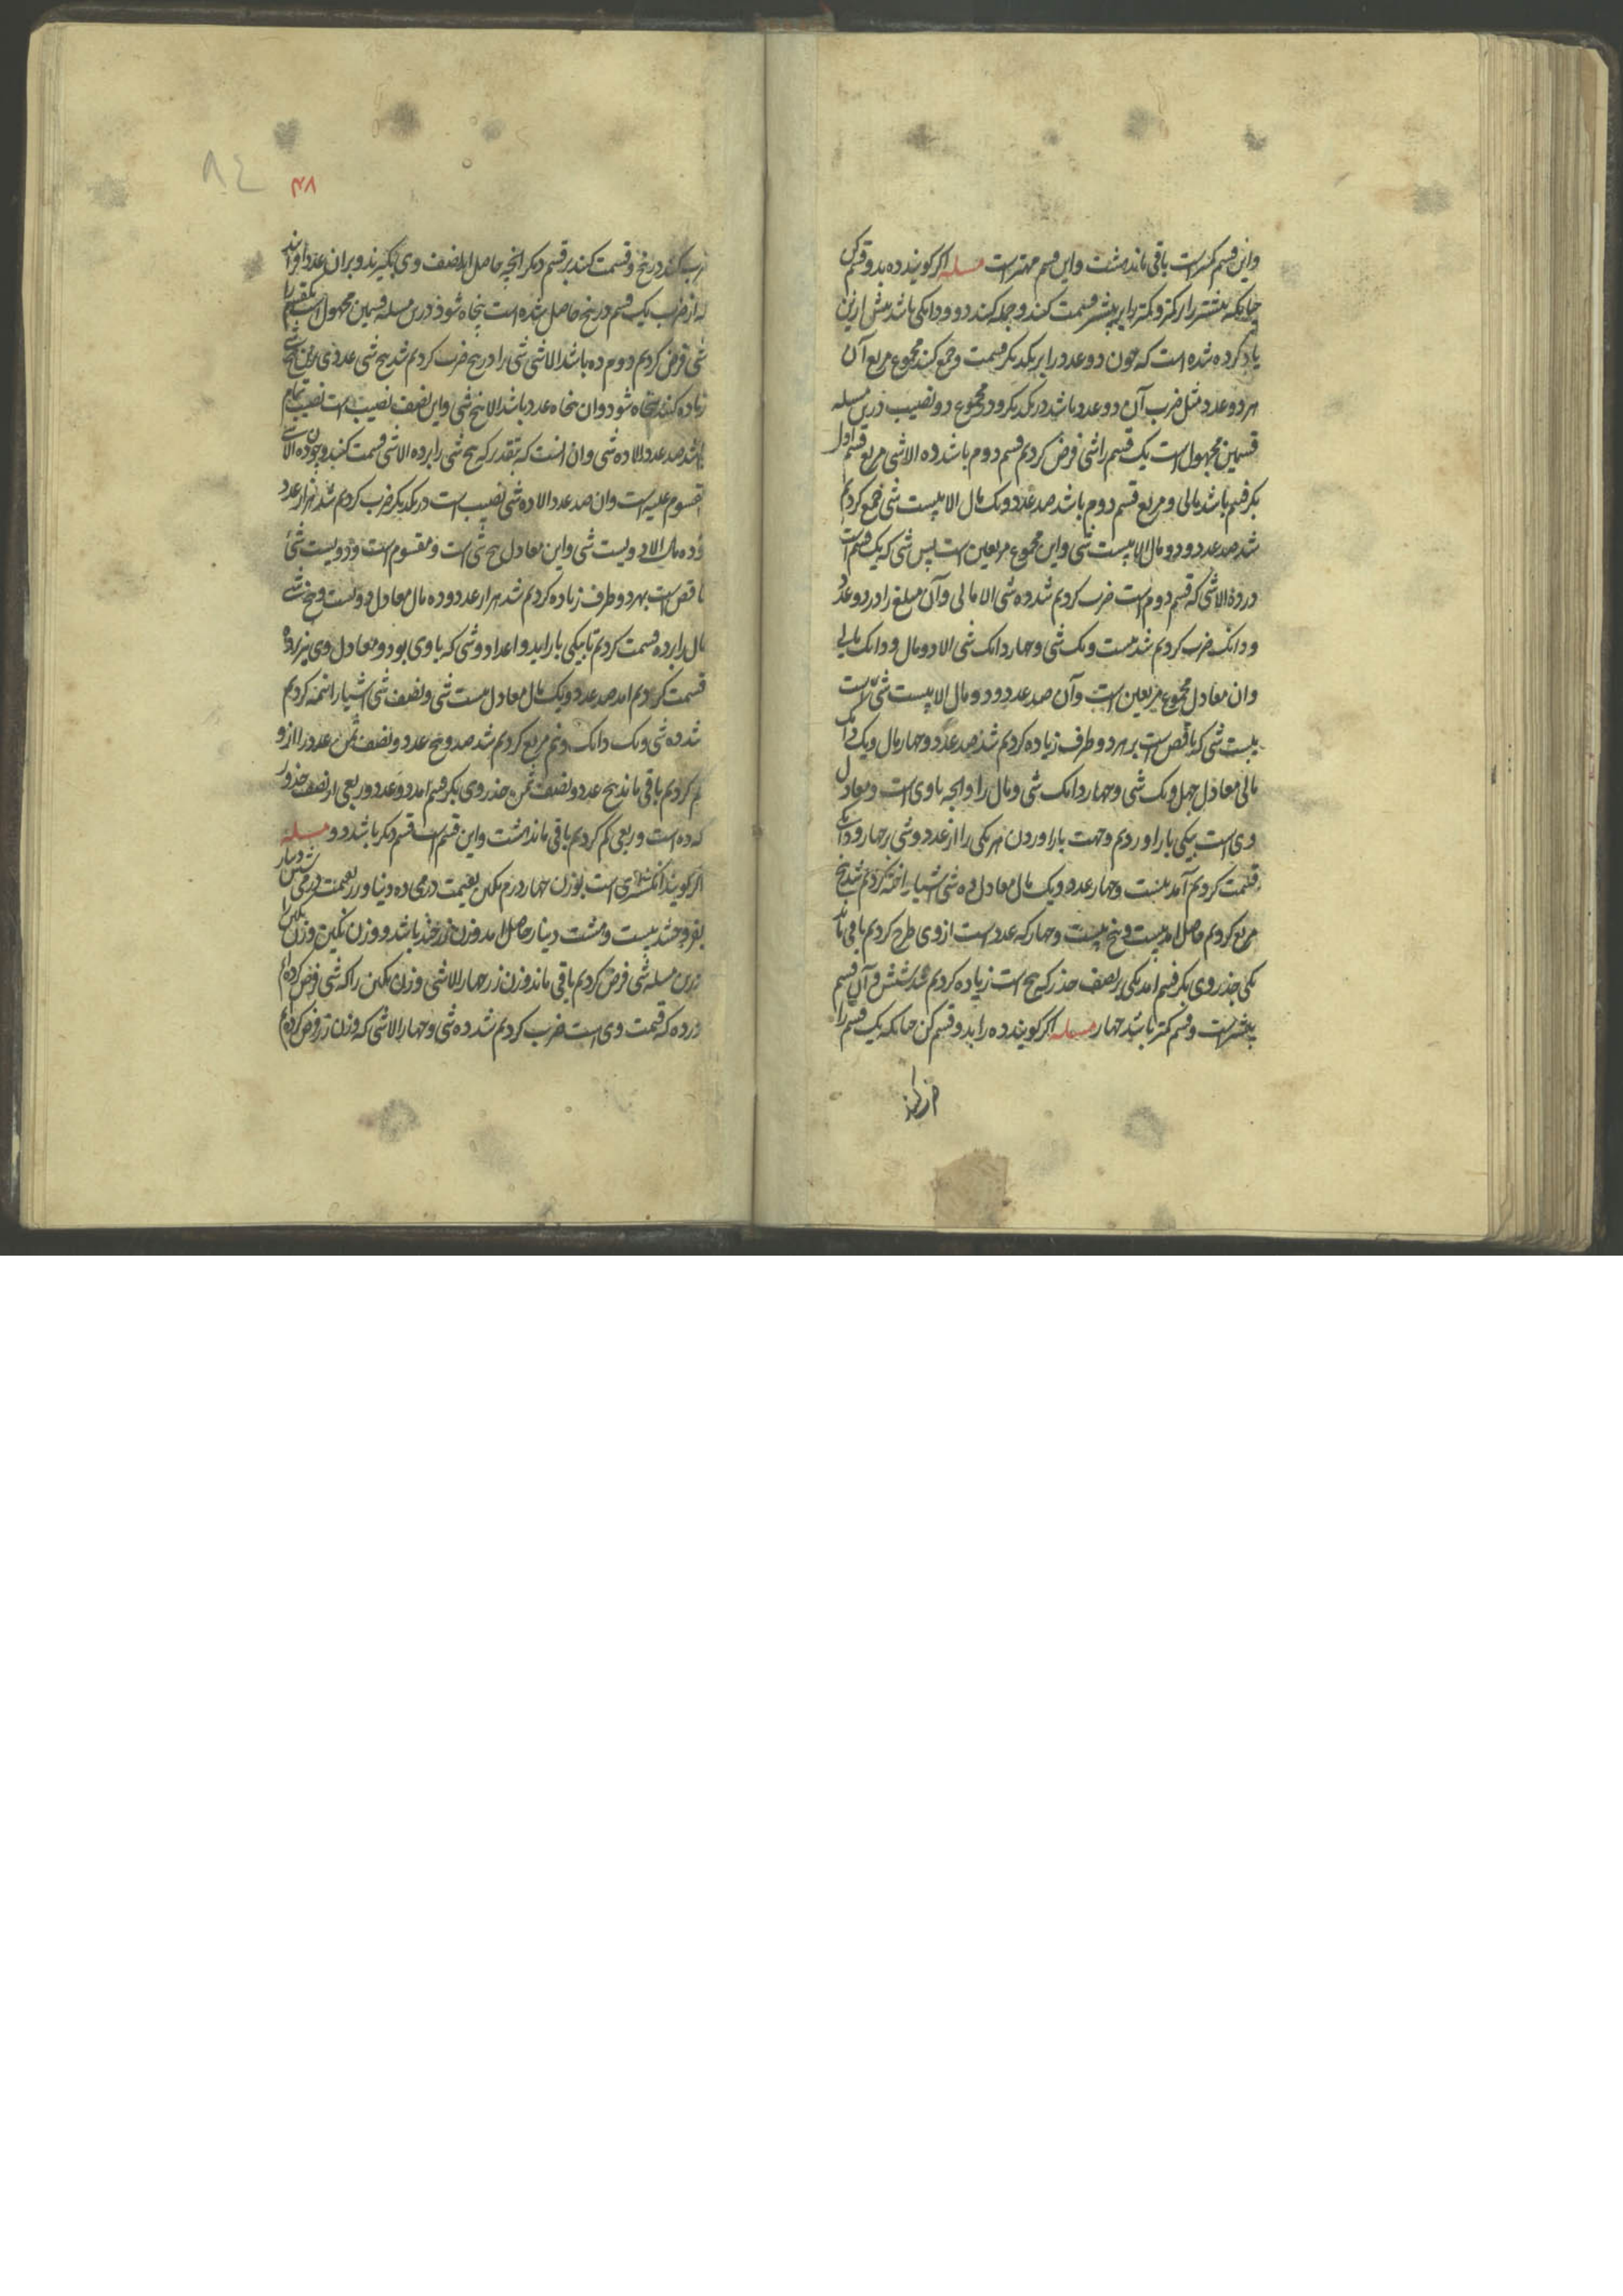 واین قسم کمترست باقی ماند هشت واین قسم مهترست مسله اکر کویند ده بدو قسم کن
چنانکه بیشتر را بر کمتر و کمتر را بر بیشتر قسمت کنند و جمله کنند دو و دانکی باشد پیش ازین
یاد کرده شده است که چون دو عدد را بر یکدیکر قسمت و جمع کنند مجموع مربع آن
هر دو عدد مثل ضرب آن دو عدد باشد در یکدیکر و در مجموع دو نصیب درین مسله
قسمین مجهول است یک قسم را شی فرض کردیم قسم دوم باشد ده الا شی مربع قسم اول
بکرفتیم باشد مالی و مربع قسم دوم باشد صد عدد و یک مال الا بیست شی جمع کردیم
شد صد عدد و دو مال الا بیست شی واین مجموع مربعین است پس شی که یک قسم است
در ده الا شی که قسم دوم است ضرب کردیم شد ده شی الا مالی وآن مبلغ را در دو عدد
و دانک ضرب کردیم شد بیست و یک شی و چهار دانک شی الا دو مال و دانک مالی
وان معادل مجموع مربعین است وآن صد عدد و دو مال الا بیست شی است
بیست شی که ناقص است بر هر دو طرف زیاده کردیم شد صد عدد و چهار مال و یک دانک
مالی معادل چهل و یک شی و چهار دانک شی و مال را وانچه با وی است و معادل
وی است بیکی باز اوردیم وجهت باز اوردن هر یکی را از عدد و شی بر چهار و دانکی
قسمت کردیم آمد بیست و چهار عدد و یک مال معادل ده شی اشیا را نیمه کردیم شد پنج
مربع کردیم حاصل امد بیست و پنج بیست و چهار که عدد است از وی طرح کردیم باقی ماند
یکی جذر وی بکرفتیم امد یکی بر نصف جذر که پنج است زیاده کردیم شد شش وآن قسم
بیشترست و قسم کمتر باشد چهار مسله اکر کویند ده را بدو قسم کن چنانکه یک قسم را
ضرب کنند
۴۸
٨٤
ضرب کنند در پنج و قسمت کنند بر قسم دیکر انچه حاصل اید نصف وی بکیرند و بران عدد افزایند
که از ضرب یک قسم در پنج حاصل شده است پنجاه شود درین مسله قسمین مجهول است یک قسم را
شی فرض کردیم دوم ده باشد الا شی شی را در پنج ضرب کردیم شد پنج شی عددی برین پنج شی
زیاده کنند پنجاه شود وان پنجاه عدد باشد الا پنج شی واین نصف نصیب است نصیب تمام
باشد صد عدد الا ده شی وان انست که بتقدیر که پنج شی را بر ده الا شی قسمت کنند و چون ده الا شی
مقسوم علیه است وان صد عدد الا ده شی نصیب است در یکدیکر ضرب کردیم شد هزار عدد
و ده مال الا دویست شی واین معادل پنج شی است و مقسوم است و دویست شی
ناقص است بهر دو طرف زیاده کردیم شد هزار عدد و ده مال معادل دویست و پنج شی
مال را بر ده قسمت کردیم تا بیکی باز اید و اعداد و شی که با وی بود و معادل وی نیز بر ده
قسمت کردیم امد صد عدد و یک مال معادل بیست شی و نصف شی اشیا را نیمه کردیم
شد ده شی و یک دانک و نیم مربع کردیم شد صد و پنج عدد و نصف ثمن عدد را از و
کم کردیم باقی ماند پنج عدد و نصف ثمن جذر وی بکرفتیم امد دو عدد و ربعی از نصف جذور
که ده است و ربعی کم کردیم باقی ماند هشت واین قسم است قسم دیکر باشد دو مسله
اکر کویند انکشتری است بوزن چهار درم نکین بقیمت درمی ده دینار و زر بقیمت درمی شش دینار
بفروختند بیست و هشت دینار حاصل امد وزن زر چند باشد و وزن نکین وزن نکین را
درین مسله شی فرض کردیم باقی ماند وزن زر چهار الا شی وزن نکین را که شی فرض کرده ایم
در ده که قیمت وی است ضرب کردیم شد ده شی و چهار الا شی که وزن زر فرض کردیم